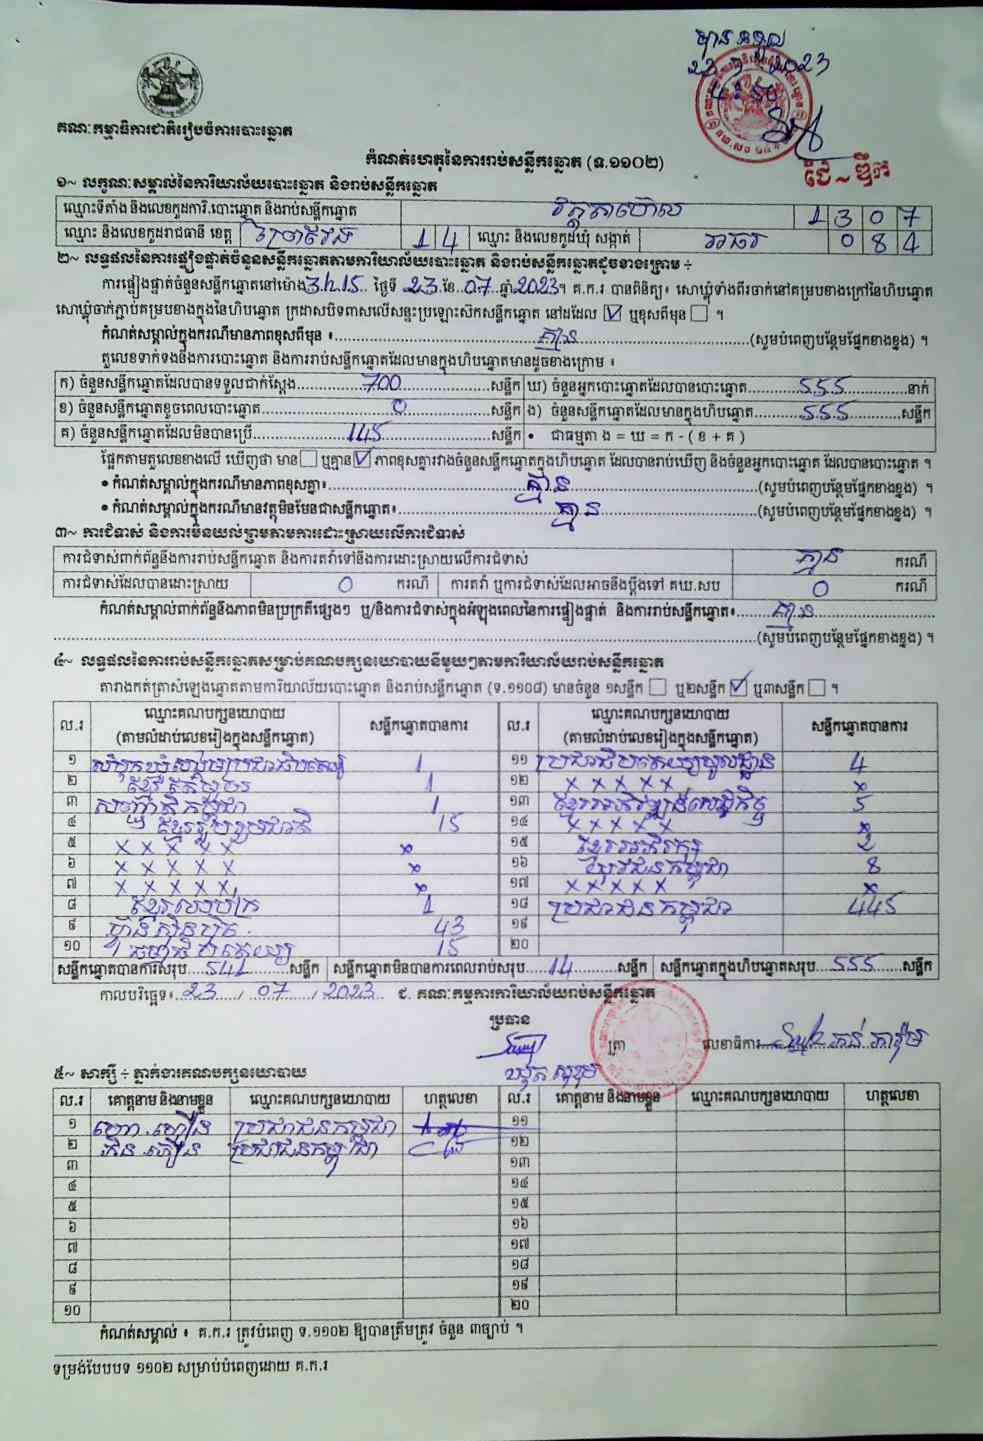 បានទទួល
23 7 2023
គណៈកម្មាធិការជាតិរៀបចំការបោះឆ្នោត
កំណត់ហេតុនៃការរាប់សន្លឹកឆ្នោត (ទ.១១០២)
១~ លក្ខណៈសម្គាល់នៃការិយាល័យបោះឆ្នោត និងរាប់សន្លឹកឆ្នោត
ឈ្មោះទីតាំង និងលេខកូដការិ.បោះឆ្នោត និងរាប់សន្លឹកឆ្នោត វត្តតាហ៊ែល 1 3 0 7
ឈ្មោះ និងលេខកូដរាជធានី ខេត្ត ព្រៃវែង 1 4 ឈ្មោះ និងលេខកូដឃុំ សង្កាត់ 0 8 4
២~ លទ្ធផលនៃការផ្ទៀងផ្ទាត់ចំនួនសន្លឹកឆ្នោតតាមការិយាល័យបោះឆ្នោត និងរាប់សន្លឹកឆ្នោតដូចខាងក្រោម ÷
ការផ្ទៀងផ្ទាត់ចំនួនសន្លឹកឆ្នោតនៅម៉ោង 3h15 ថ្ងៃទី 23 ខែ 07 ឆ្នាំ 2023។ គ.ក.រ បានពិនិត្យ៖ សោឃ្លុំទាំងពីរចាក់នៅគម្របខាងក្រៅនៃហិបឆ្នោត
សោឃ្លុំចាក់ភ្ជាប់គម្របខាងក្នុងនៃហិបឆ្នោត ក្រដាសបិទពាសលើសន្ទះប្រឡោះស៊កសន្លឹកឆ្នោត នៅដដែល ☑ ឬខុសពីមុន ☐ ។
កំណត់សម្គាល់ក្នុងករណីមានភាពខុសពីមុន ៖ គ្មាន (សូមបំពេញបន្ថែមផ្នែកខាងខ្នង) ។
តួលេខទាក់ទងនឹងការបោះឆ្នោត និងការរាប់សន្លឹកឆ្នោតដែលមានក្នុងហិបឆ្នោតមានដូចខាងក្រោម ៖
ក) ចំនួនសន្លឹកឆ្នោតដែលបានទទួលជាក់ស្តែង 700 សន្លឹក ឃ) ចំនួនអ្នកបោះឆ្នោតដែលបានបោះឆ្នោត 555 នាក់
ខ) ចំនួនសន្លឹកឆ្នោតខូចពេលបោះឆ្នោត 0 សន្លឹក ង) ចំនួនសន្លឹកឆ្នោតដែលមានក្នុងហិបឆ្នោត 555 សន្លឹក
គ) ចំនួនសន្លឹកឆ្នោតដែលមិនបានប្រើ 145 សន្លឹក • ជាធម្មតា ង = ឃ = ក - ( ខ + គ )
ផ្អែកតាមតួលេខខាងលើ ឃើញថា មាន ☐ ឬគ្មាន ☑ ភាពខុសគ្នារវាងចំនួនសន្លឹកឆ្នោតក្នុងហិបឆ្នោត ដែលបានរាប់ឃើញ និងចំនួនអ្នកបោះឆ្នោត ដែលបានបោះឆ្នោត ។
• កំណត់សម្គាល់ក្នុងករណីមានភាពខុសគ្នា៖ គ្មាន (សូមបំពេញបន្ថែមផ្នែកខាងខ្នង) ។
• កំណត់សម្គាល់ក្នុងករណីមានវត្ថុមិនមែនជាសន្លឹកឆ្នោត៖ គ្មាន (សូមបំពេញបន្ថែមផ្នែកខាងខ្នង) ។
៣~ ការជំទាស់ និងការមិនយល់ព្រមតាមការដោះស្រាយលើការជំទាស់
ការជំទាស់ពាក់ព័ន្ធនឹងការរាប់សន្លឹកឆ្នោត និងការតវ៉ាទៅនឹងការដោះស្រាយលើការជំទាស់ គ្មាន ករណី
ការជំទាស់ដែលបានដោះស្រាយ 0 ករណី ការតវ៉ា ឬការជំទាស់ដែលអាចនឹងប្តឹងទៅ គឃ.សប 0 ករណី
កំណត់សម្គាល់ពាក់ព័ន្ធនឹងភាពមិនប្រក្រតីផ្សេងៗ ឬ/និងការជំទាស់ក្នុងអំឡុងពេលនៃការផ្ទៀងផ្ទាត់ និងការរាប់សន្លឹកឆ្នោត៖ គ្មាន
(សូមបំពេញបន្ថែមផ្នែកខាងខ្នង) ។
៤~ លទ្ធផលនៃការរាប់សន្លឹកឆ្នោតសម្រាប់គណបក្សនយោបាយនីមួយៗតាមការិយាល័យរាប់សន្លឹកឆ្នោត
តារាងកត់ត្រាសំឡេងឆ្នោតតាមការិយាល័យបោះឆ្នោត និងរាប់សន្លឹកឆ្នោត (ទ.១១០៨) មានចំនួន ១សន្លឹក ☐ ឬ២សន្លឹក ☑ ឬ៣សន្លឹក ☐ ។
ល.រ ឈ្មោះគណបក្សនយោបាយ (តាមលំដាប់លេខរៀងក្នុងសន្លឹកឆ្នោត) សន្លឹកឆ្នោតបានការ ល.រ ឈ្មោះគណបក្សនយោបាយ (តាមលំដាប់លេខរៀងក្នុងសន្លឹកឆ្នោត) សន្លឹកឆ្នោតបានការ
១ សំបុកឃ្មុំសង្គមប្រជាធិបតេយ្យ 1 ១១ ប្រជាធិបតេយ្យមូលដ្ឋាន 4
២ ខ្មែរឈប់ក្រ 1 ១២ x x x x x x
៣ សញ្ជាតិកម្ពុជា 1 ១៣ ខ្មែរអភិវឌ្ឍន៍សេដ្ឋកិច្ច 5
៤ ខ្មែររួបរួមជាតិ 15 ១៤ x x x x x x
៥ x x x x x x ១៥ ខ្មែរអភិរក្ស 2
៦ x x x x x x ១៦ យុវជនកម្ពុជា 8
៧ x x x x x x ១៧ x x x x x x
៨ 1 ១៨ ប្រជាជនកម្ពុជា 445
៩ ហ្វ៊ុនស៊ិនប៉ិច 43 ១៩
១០ ធម្មាធិបតេយ្យ 15 ២០
សន្លឹកឆ្នោតបានការសរុប 541 សន្លឹក សន្លឹកឆ្នោតមិនបានការពេលរាប់សរុប 14 សន្លឹក សន្លឹកឆ្នោតក្នុងហិបឆ្នោតសរុប 555 សន្លឹក
កាលបរិច្ឆេទ៖ 23 / 07 / 2023 ជ. គណៈកម្មការការិយាល័យរាប់សន្លឹកឆ្នោត
ប្រធាន
ត្រា លេខាធិការ
៥~ សាក្សី ÷ ភ្នាក់ងារគណបក្សនយោបាយ
ល.រ គោត្តនាម និងនាមខ្លួន ឈ្មោះគណបក្សនយោបាយ ហត្ថលេខា ល.រ គោត្តនាម និងនាមខ្លួន ឈ្មោះគណបក្សនយោបាយ ហត្ថលេខា
១ ប្រជាជនកម្ពុជា ១១
២ ប្រជាជនកម្ពុជា ១២
៣ ១៣
៤ ១៤
៥ ១៥
៦ ១៦
៧ ១៧
៨ ១៨
៩ ១៩
១០ ២០
កំណត់សម្គាល់ ៖ គ.ក.រ ត្រូវបំពេញ ទ.១១០២ ឱ្យបានត្រឹមត្រូវ ចំនួន ៣ច្បាប់ ។
ទម្រង់បែបបទ ១១០២ សម្រាប់បំពេញដោយ គ.ក.រ